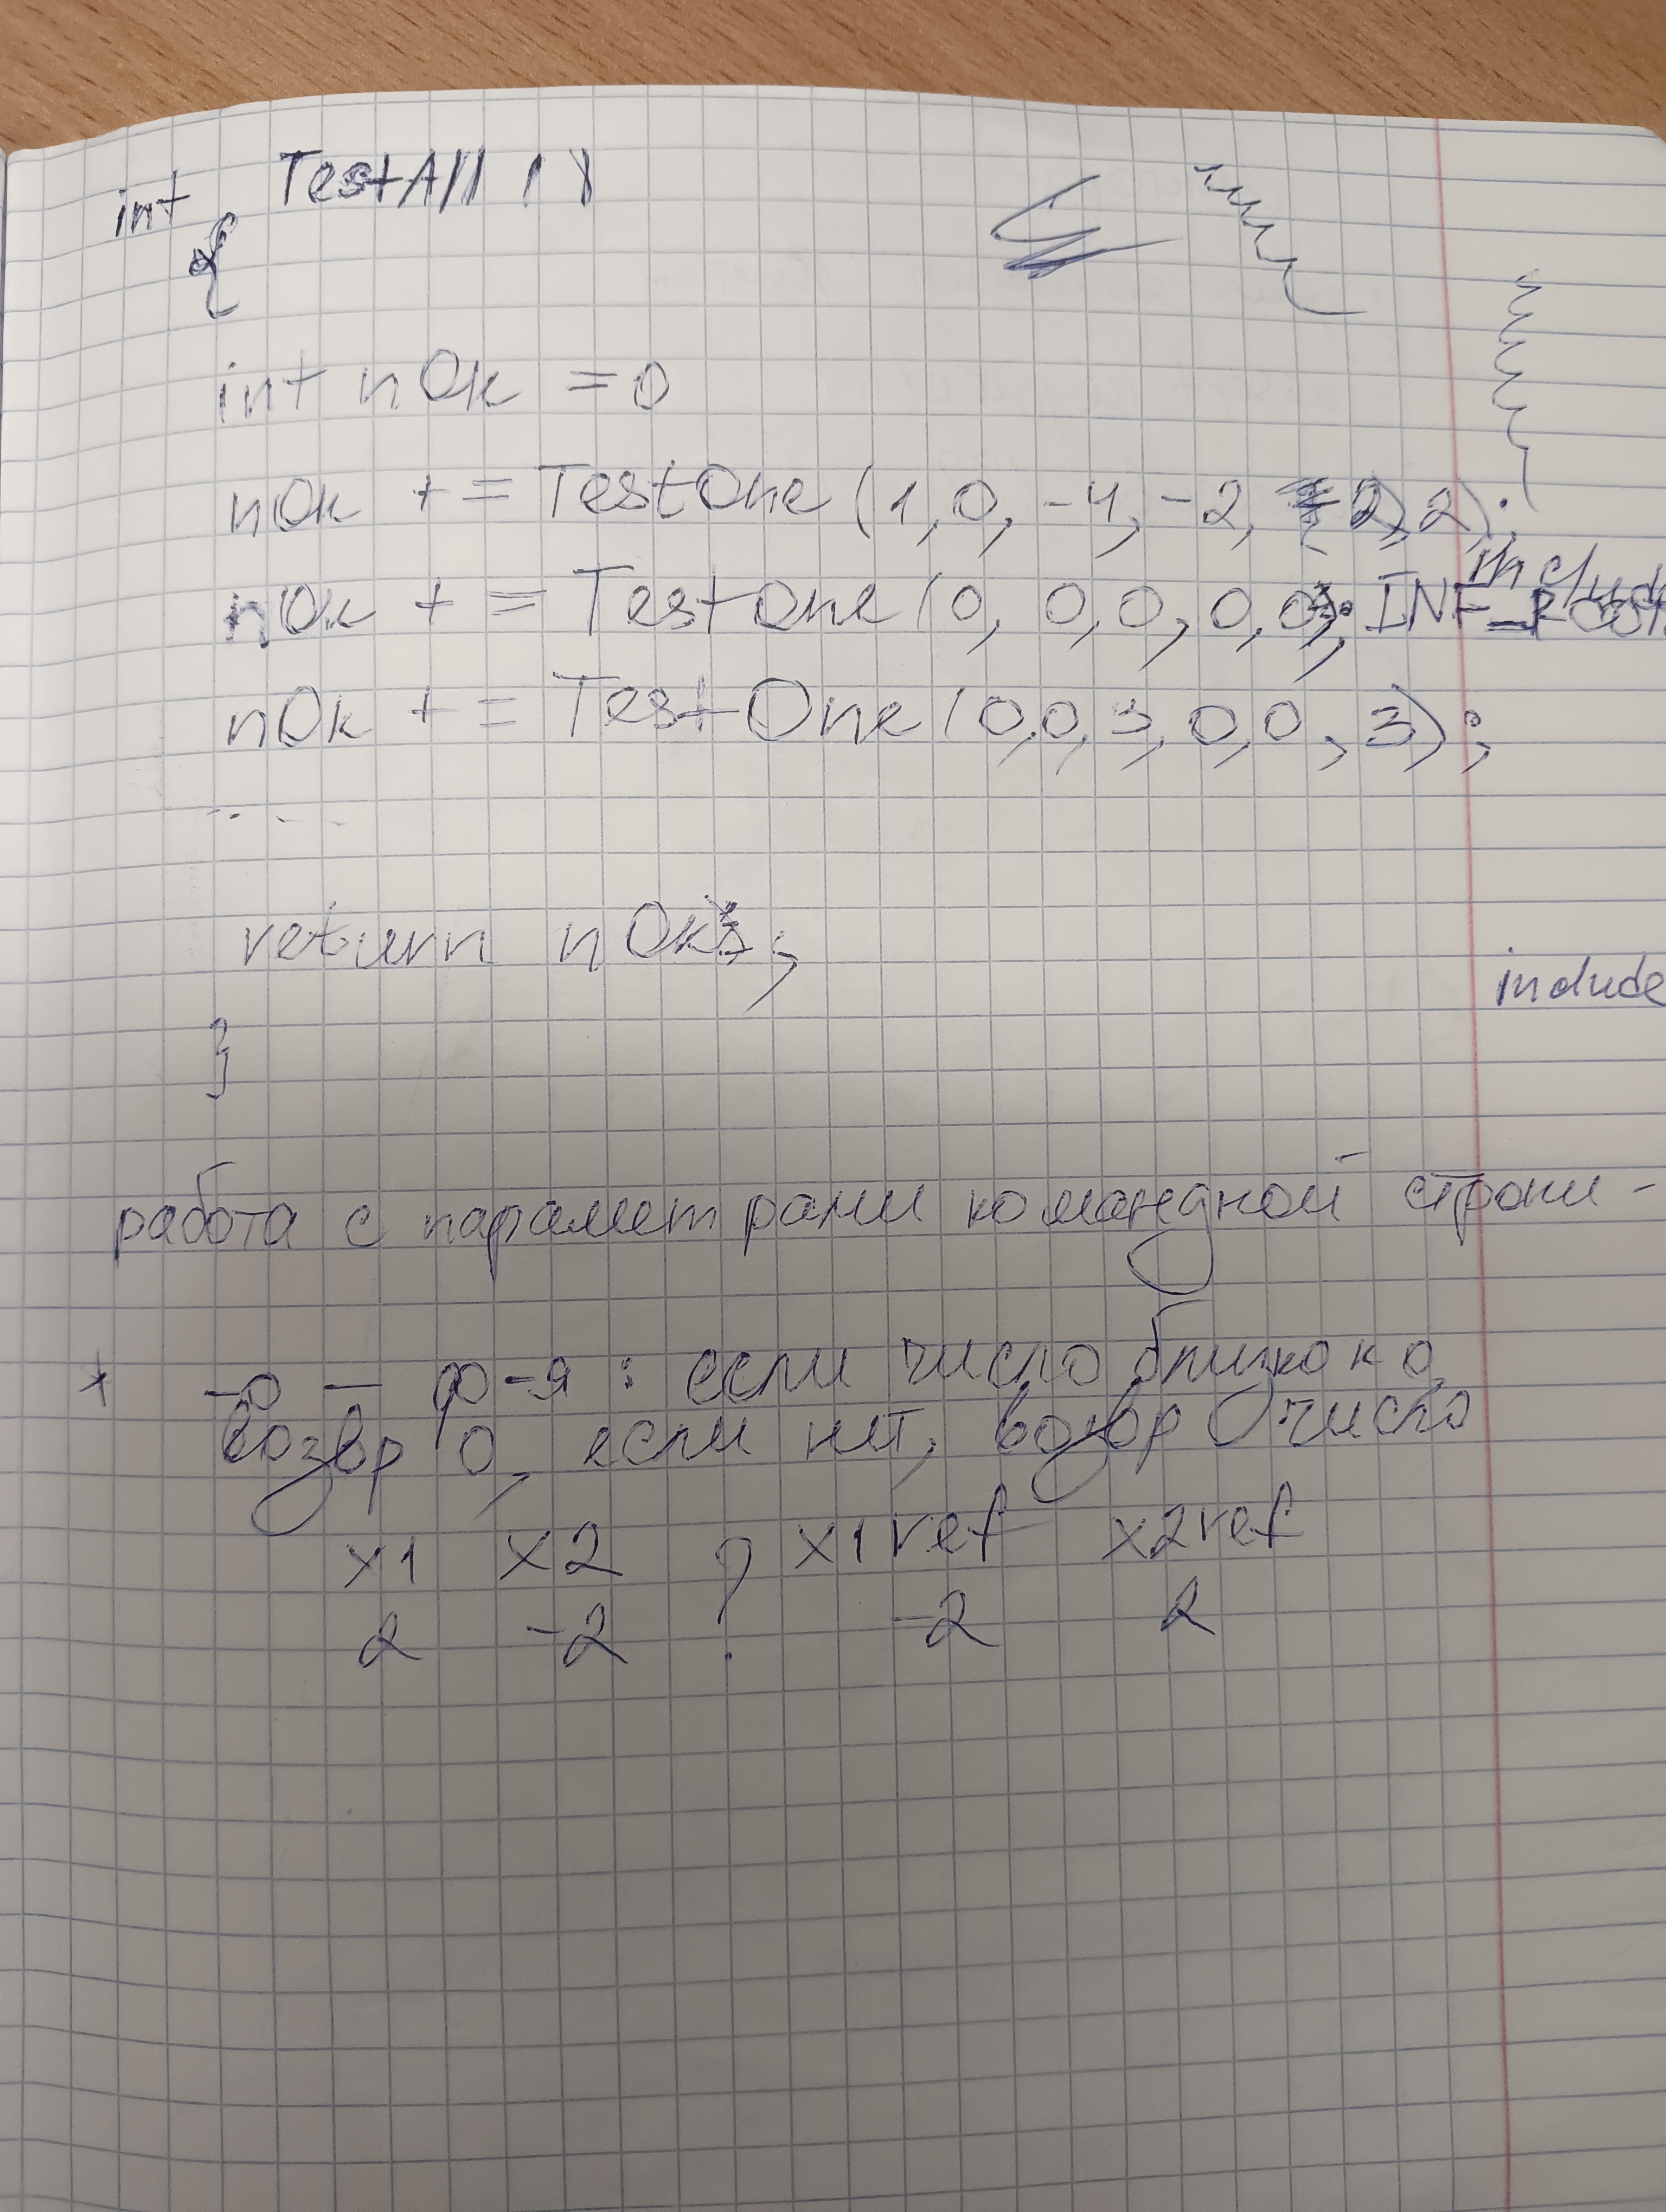 int TestAll ()
{
int nOk = 0
nOk += TestOne (1, 0, -4, -2, 2, 2);
include
nOk += TestOne (0, 0, 0, 0, 0, INF_ROOTS
nOk += TestOne (0, 0, 3, 0, 0, 3);
....
return nOk;
include
}
работа с параметрами командной строки -
* -0 — ф-я : если число близко к 0,
возвр 0, если нет, возвр число
x1 x2 ? x1ref x2ref
2 -2 -2 2